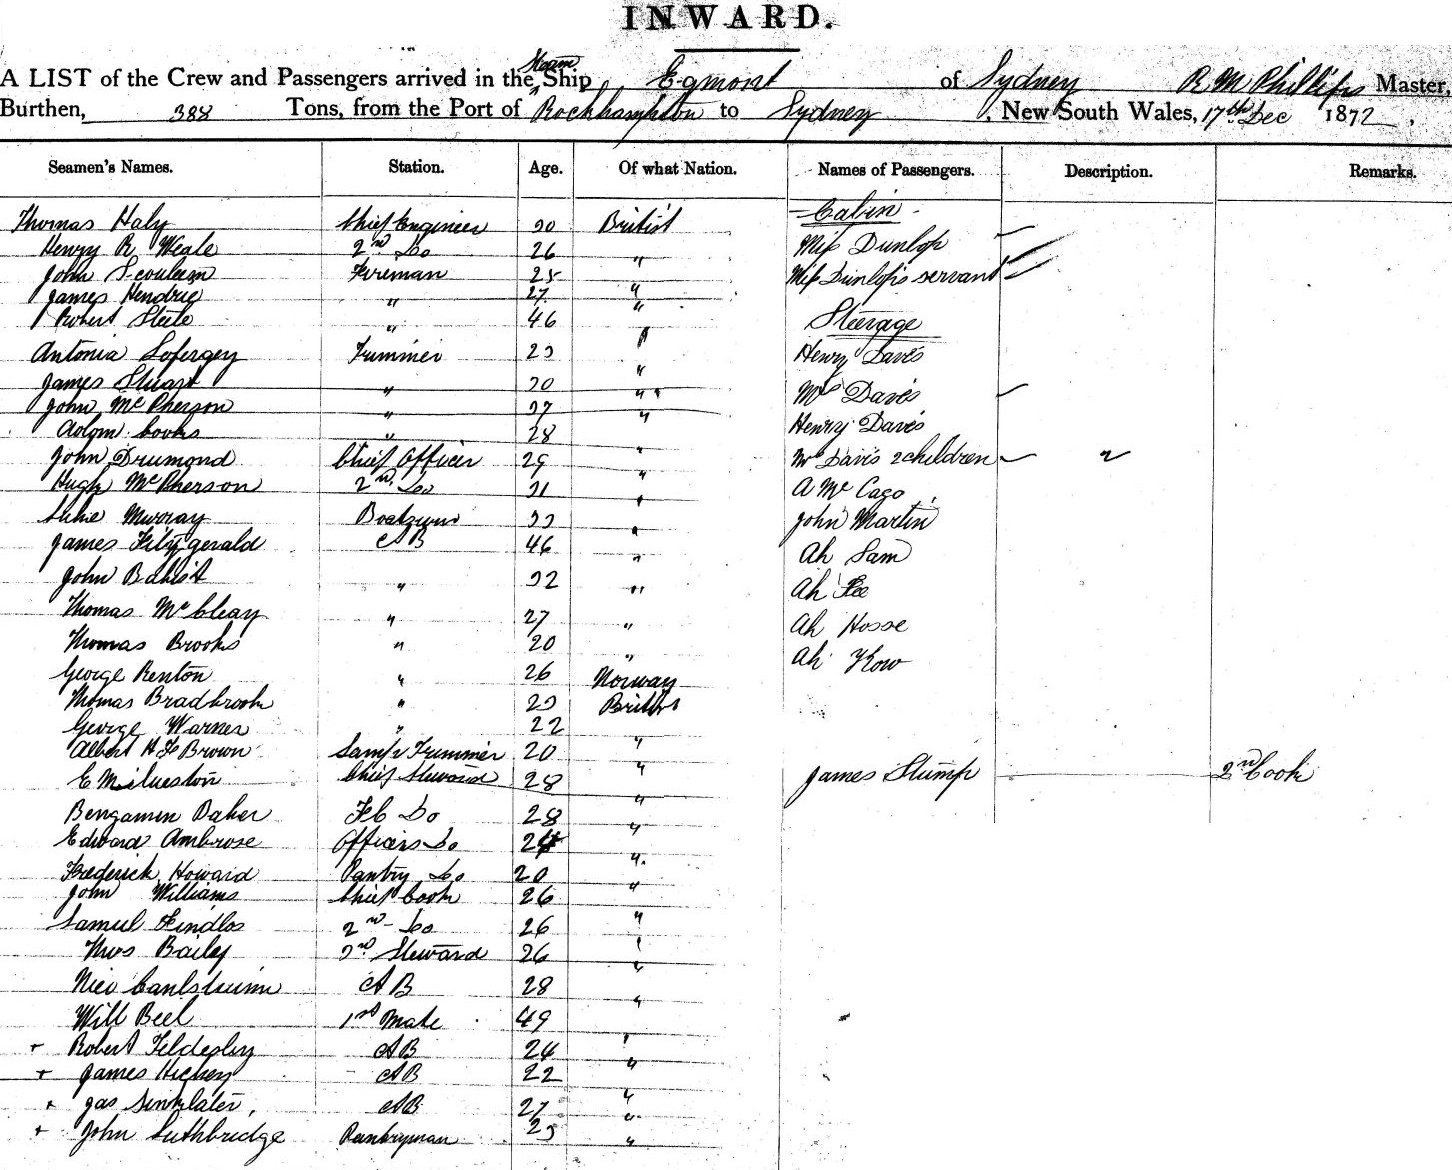 INWARD.
A LIST of the Crew and Passengers arrived in the Steam Ship Egmont of Sydney R M Phillips Master,
Burthen, 388 Tons, from the Port of Rockhampton to Sydney, New South Wales, 17th Dec 1872.
Seamen's Names. Station. Age. Of what Nation. Names of Passengers. Description. Remarks.
Cabin
Thomas Haly Chief Engineer 30 British
Henry R 2nd Do 26 " Miss Dunlop
John Fireman 25 " Miss Dunlop's servant
James Hendrie " 27 "
Robert Steele " 46 " Steerage
Antonia Trimmer 23 " Henry Davis
James Stuart " 30 " Mrs Davis
John McPherson " 37 "
Adam Cooks " 28 " Henry Davis
John Drumond Chief Officer 29 " Mrs Davis 2 children
Hugh McPherson 2nd Do 31 " A Mc Cago
Murray 33 " John Martin
James Fitzgerald AB 46 " Ah Sam
John " 32 " Ah Fee
Thomas McCleay " 27 " Ah Hosse
Thomas Brooks " 20 " Ah Kow
George Renton " 26 Norway
Thomas Bradbrook " 23 British
George Warner " 22
Albert H Brown Lamp Trimmer 20 "
E Chief Steward 28 " James Stump 2nd Cook
Bengamin Baker Do 28 "
Edward Ambrose Officers Do 24 "
Frederick Howard Pantry Do 20 "
John Williams Chief Cook 26 "
Samul Findlos 2nd Do 26 "
Thos Baily 3rd Steward 26 "
AB 28 "
Will Beel 1st Mate 49 "
Robert AB 24 "
James Hickey AB 22 "
Jas AB 27 "
John Suthbridge Pantryman 23 "